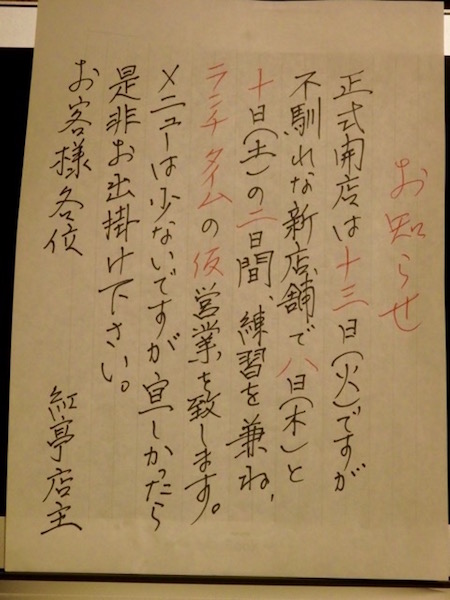 お知らせ
正式開店は十三日(火)ですが
不馴れな新店舗で八日(木)と
十日(土)の二日間、練習を兼ね、
ランチタイムの仮営業を致します。
メニューは少ないですが宜しかったら
是非お出掛け下さい。
お客様各位
紅亭店主